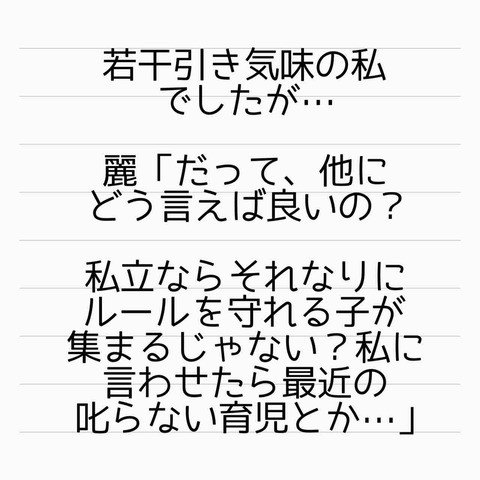 若干引き気味の私
でしたが…
麗「だって、他に
どう言えば良いの？
私立ならそれなりに
ルールを守れる子が
集まるじゃない？私に
言わせたら最近の
叱らない育児とか…」